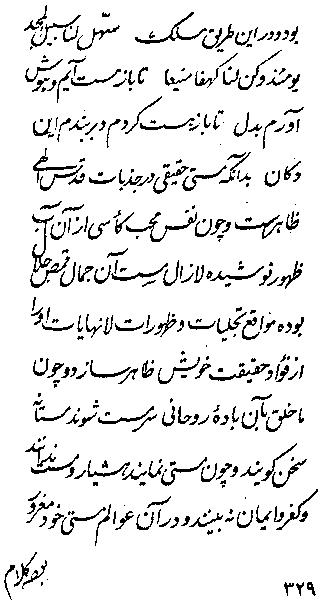 بود و در این طریق مسلک سهّل لنا سبیل الحدّ
یومئذ و کن لنا کهفا منیعا تا باز مست آیم و بهوش
آورم بدل تا باز هست کردم در بندم این
دکان بدانکه مستی حقیقی در جذبات قدس الهی
ظاهر است و چون نفس محب کأسی از آن آب
ظهور نوشیده لازال مست آن جمال قمص جلال
بوده مواقع تجلیات و ظهورات لانهایات او را
از فؤاد حقیقت خویش ظاهر سازد و چون
ما خلق بآن بادهٔ روحانی سرمست شوند مستانه
سخن گویند و چون مستی نمایند هشیار و مست ندانند
و کفر و ایمان نه بینند و در آن عوالم مستی خود مغرور
بعضی کلام
۳۲۹